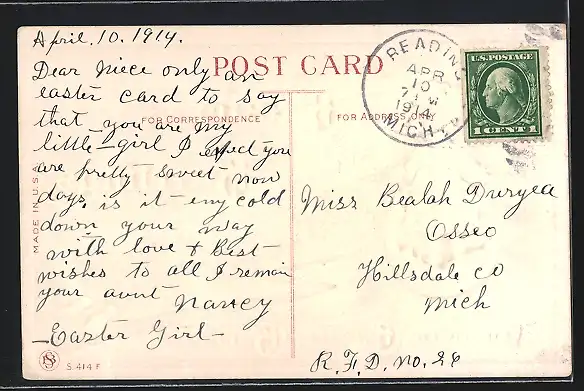 April. 10. 1914.
POST CARD
Dear niece only an
easter card to say
that you are my
little girl I expect you
are pretty sweet now
days, is it eny cold
down your way
with love & Best
wishes to all I remain
your aunt Nancy
- Easter Girl -
FOR CORRESPONDENCE
FOR ADDRESS ONLY
MADE IN U.S.A.
S. 414 F
READING
APR
10
7 M
1914
MICH.
U.S. POSTAGE
1 CENT 1
Miss Bealah Duryea
Osseo
Hillsdale Co
Mich
R. F. D. No. 26